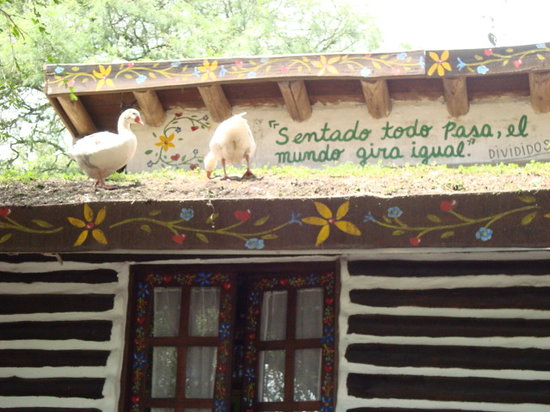 "Sentado todo Pasa, el
mundo gira igual." DIVIDIDOS